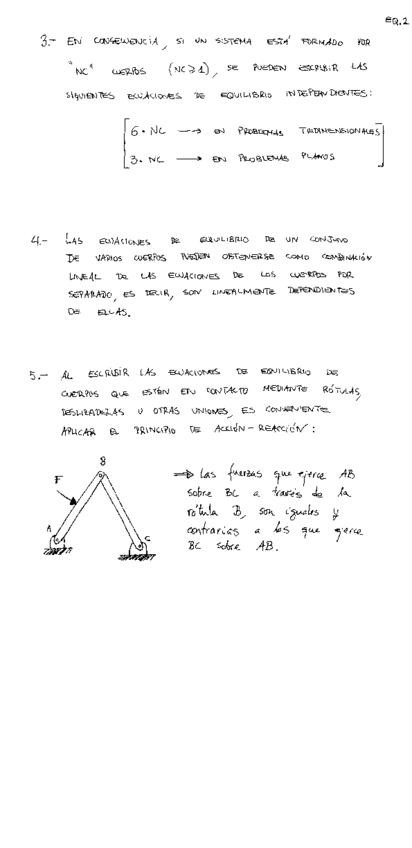 EQ.2
3.- EN CONSECUENCIA, SI UN SISTEMA ESTÁ FORMADO POR
"NC" CUERPOS (NC≥1), SE PUEDEN ESCRIBIR LAS
SIGUIENTES ECUACIONES DE EQUILIBRIO INDEPENDIENTES:
6·NC → EN PROBLEMAS TRIDIMENSIONALES
3·NC → EN PROBLEMAS PLANOS
4.- LAS ECUACIONES DE EQUILIBRIO DE UN CONJUNTO
DE VARIOS CUERPOS PUEDEN OBTENERSE COMO COMBINACIÓN
LINEAL DE LAS ECUACIONES DE LOS CUERPOS POR
SEPARADO, ES DECIR, SON LINEALMENTE DEPENDIENTES
DE ELLAS.
5.- AL ESCRIBIR LAS ECUACIONES DE EQUILIBRIO DE
CUERPOS QUE ESTÉN EN CONTACTO MEDIANTE RÓTULAS,
DESLIZADERAS U OTRAS UNIONES, ES CONVENIENTE
APLICAR EL PRINCIPIO DE ACCIÓN-REACCIÓN:
B
F
A
C
⇒ Las fuerzas que ejerce AB
sobre BC a través de la
rótula B, son iguales y
contrarias a las que ejerce
BC sobre AB.